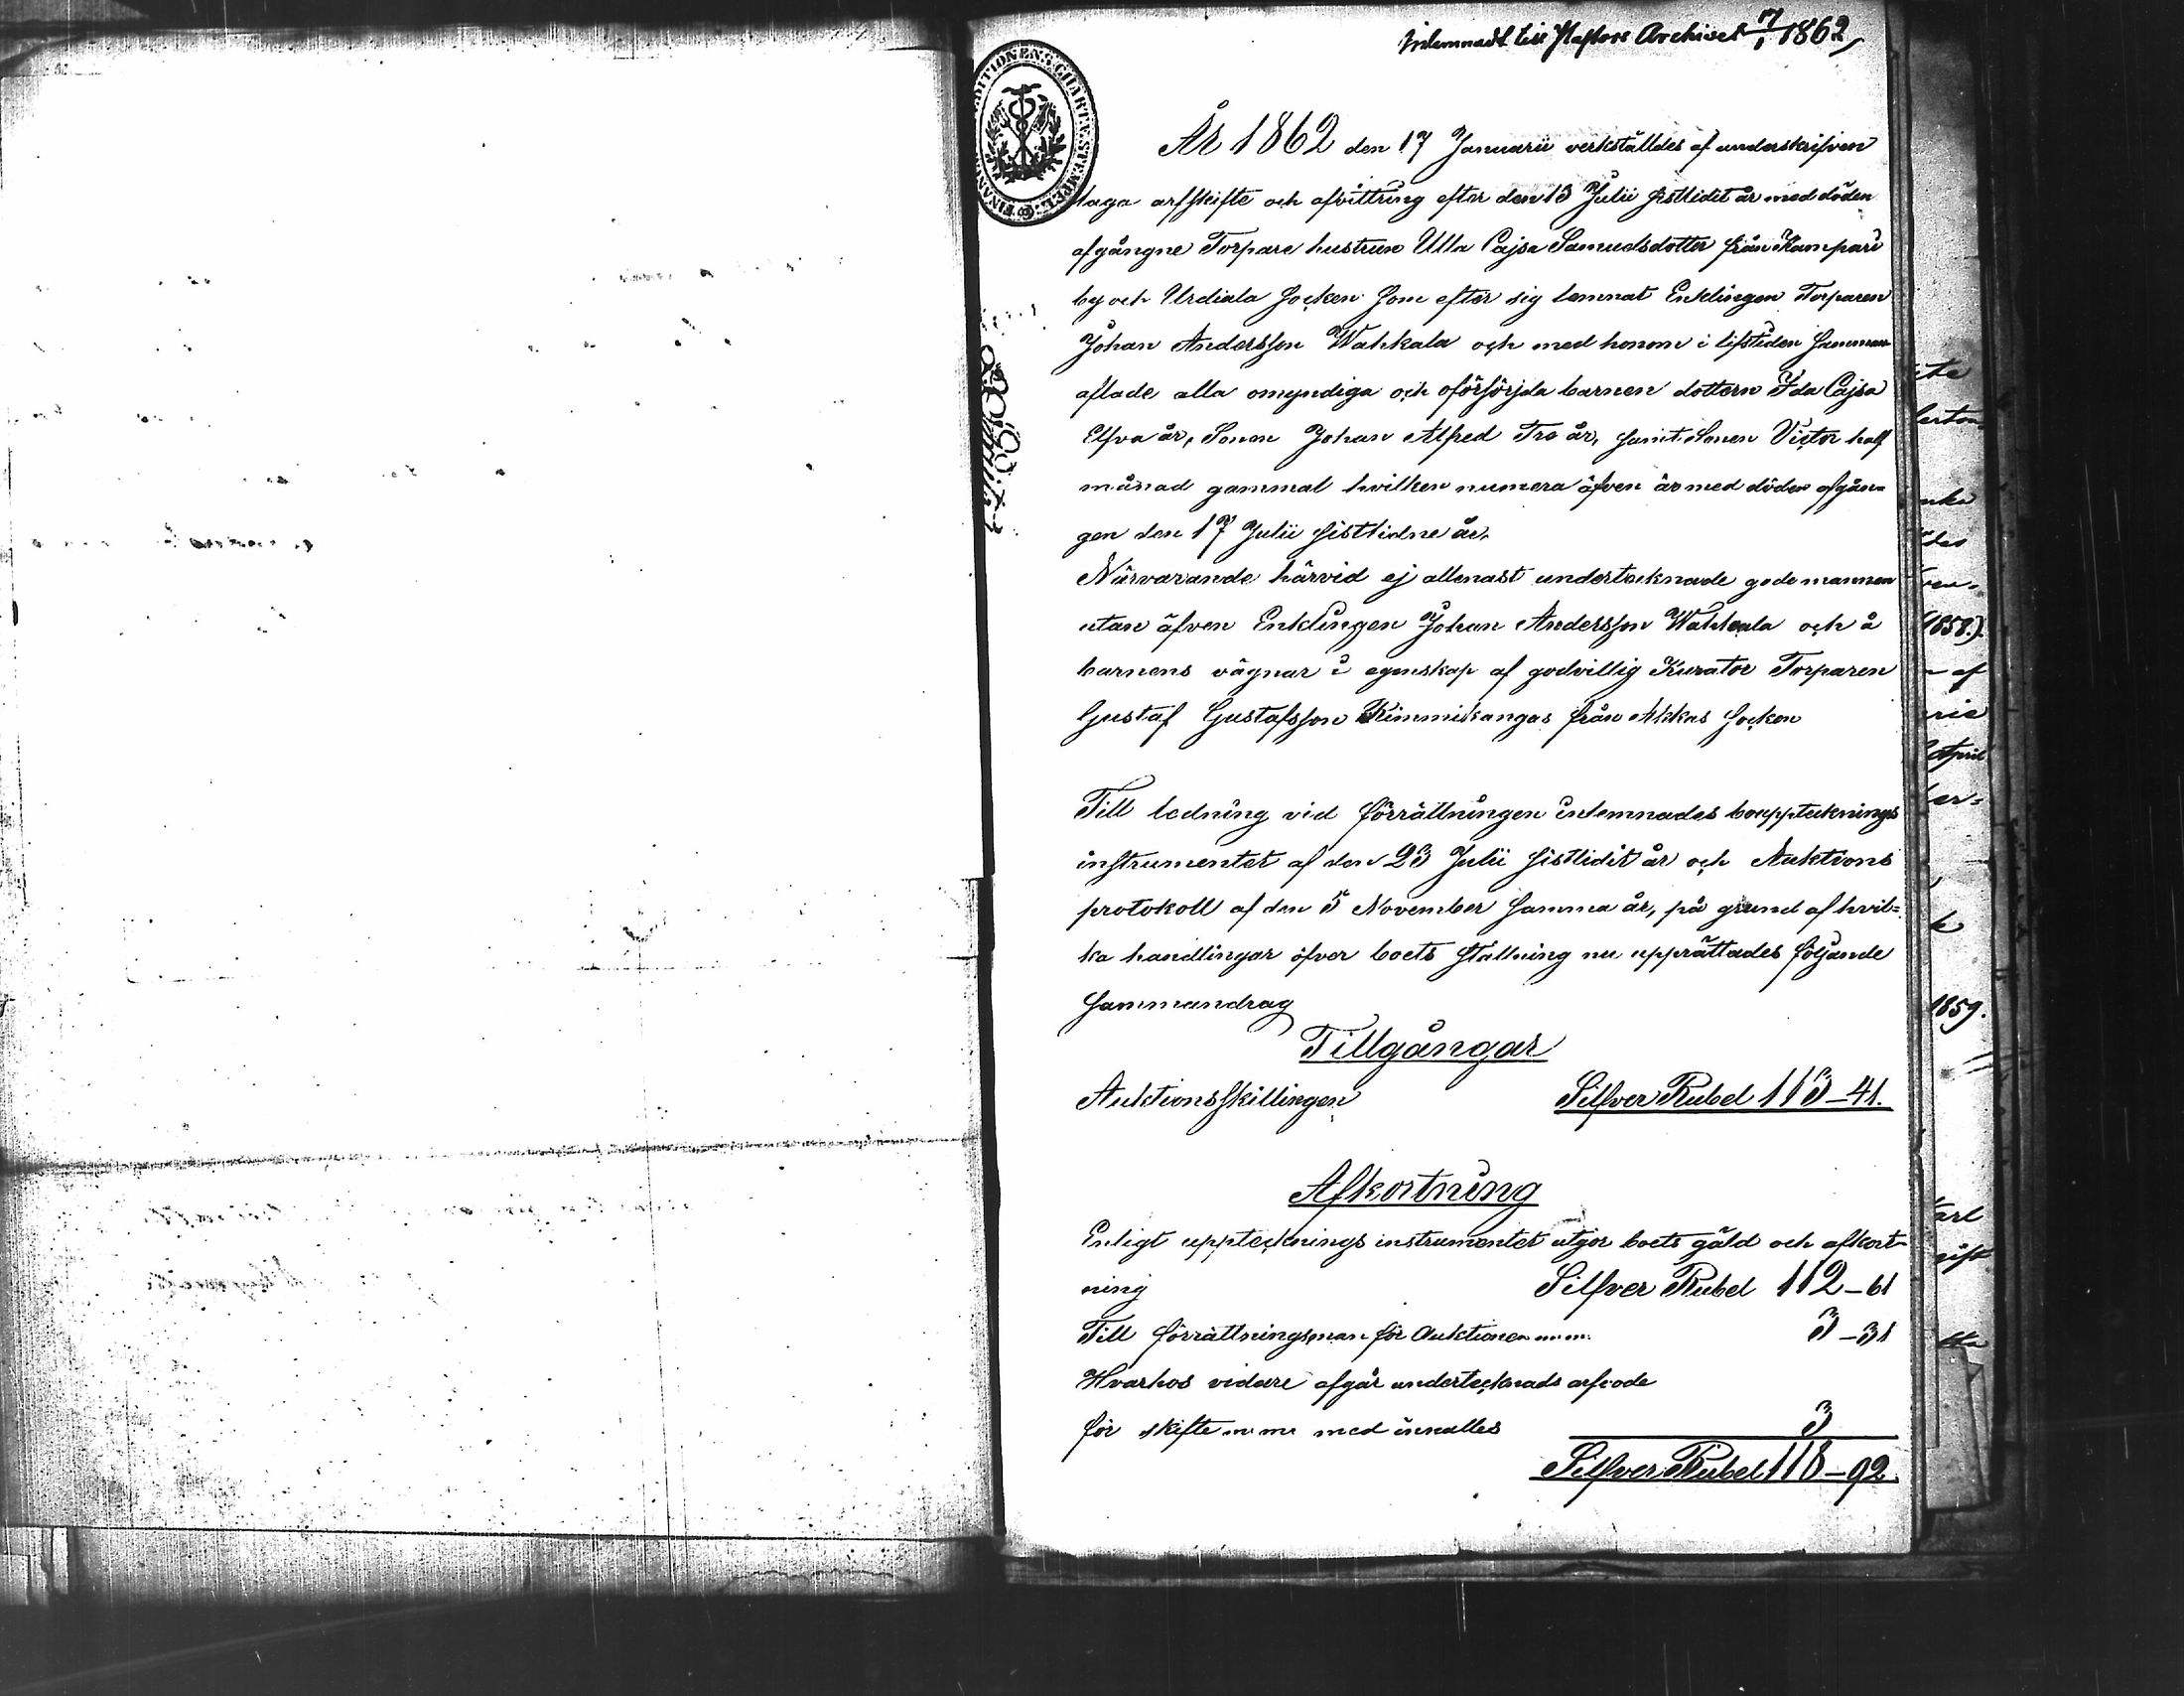 Inlemnadt till Pastors Archivet 7/1 1862
År 1862 den 17 Januarii verkställdes af underskrifven
laga arfskifte och afvittring efter den 13 Julii sistlidit år med döden
afgångne Torpare hustrun Ulla Cajsa Samuelsdotter från Kampari
by och Urdiala Socken som efter sig lemnat Enklingen Torparen
Johan Andersson Wahkala och med honom i lifstiden samman
aflade alla omyndiga och oförsörjda barnen dottern Ida Cajsa
Elfva år, Sonen Johan Alfred Tre år, samt Sonen Victor half
månad gammal hvilken numera äfven är med döden afgån-
gen den 17 Julii sistlidne år.
Närvarande härvid ej allenast undertecknade gode mannen
utan äfven Enklingen Johan Andersson Wahkala och å
barnens vägnar i egenskap af godvillig Kurator Torparen
Gustaf Gustafsson Kimmikangas från Akkas Socken
Till ledning vid förrättningen inlemnades bouppteknings
instrumentet af den 23 Julii sistlidit år och Auktions
protokoll af den 5 November samma år, på grund af hvil=
ka handlingar öfver boets ställning nu upprättades följande
Sammandrag
Tillgångar
Auktionsskillingen Silfver Rubel 113-41.
Afkortning
Enligt uppteckningsinstrumentet utgör boets gäld och afkort-
ning Silfver Rubel 112-61
Till förrättningsman för Auktionen m.m. 3-31
Hvarhos vidare afgår undertecknads arfvode
för skifte m m med innalles 3
Silfver Rubel 118-92